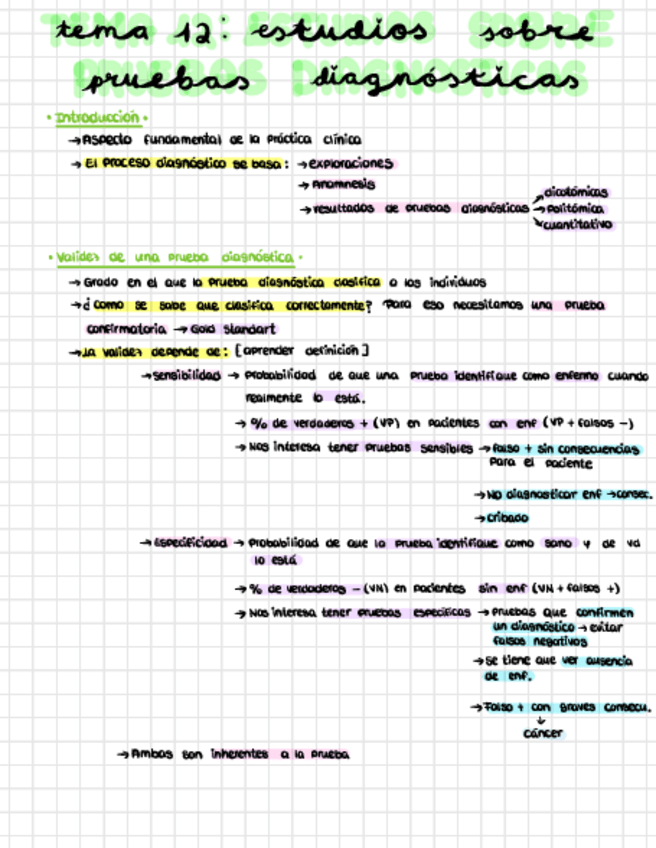 tema 12: estudios sobre
pruebas diagnósticas
• Introducción •
→ Aspecto fundamental de la práctica clínica
→ El proceso diagnóstico se basa: → exploraciones
→ Anamnesis
→ resultados de pruebas diagnósticas → dicotómicas
→ politómica
→ cuantitativo
• Validez de una prueba diagnóstica •
→ Grado en el que la prueba diagnóstica clasifica a los individuos
→ ¿Como se sabe que clasifica correctamente? Para eso necesitamos una prueba
confirmatoria → Gold standart
→ La validez depende de: [aprender definición]
→ sensibilidad → Probabilidad de que una prueba identifique como enfermo cuando
realmente lo está.
→ % de verdaderos + (VP) en pacientes con enf (VP + falsos -)
→ Nos interesa tener pruebas sensibles → falso + sin consecuencias
para el paciente
→ No diagnosticar enf → consec.
→ cribado
→ Especificidad → Probabilidad de que la prueba identifique como sano y de vd
lo está
→ % de verdaderos - (VN) en pacientes sin enf (VN + falsos +)
→ Nos interesa tener pruebas específicas → pruebas que confirmen
un diagnóstico → evitar
falsos negativos
→ se tiene que ver ausencia
de enf.
→ Falso + con graves consecu.
↓
cáncer
→ Ambas son inherentes a la prueba